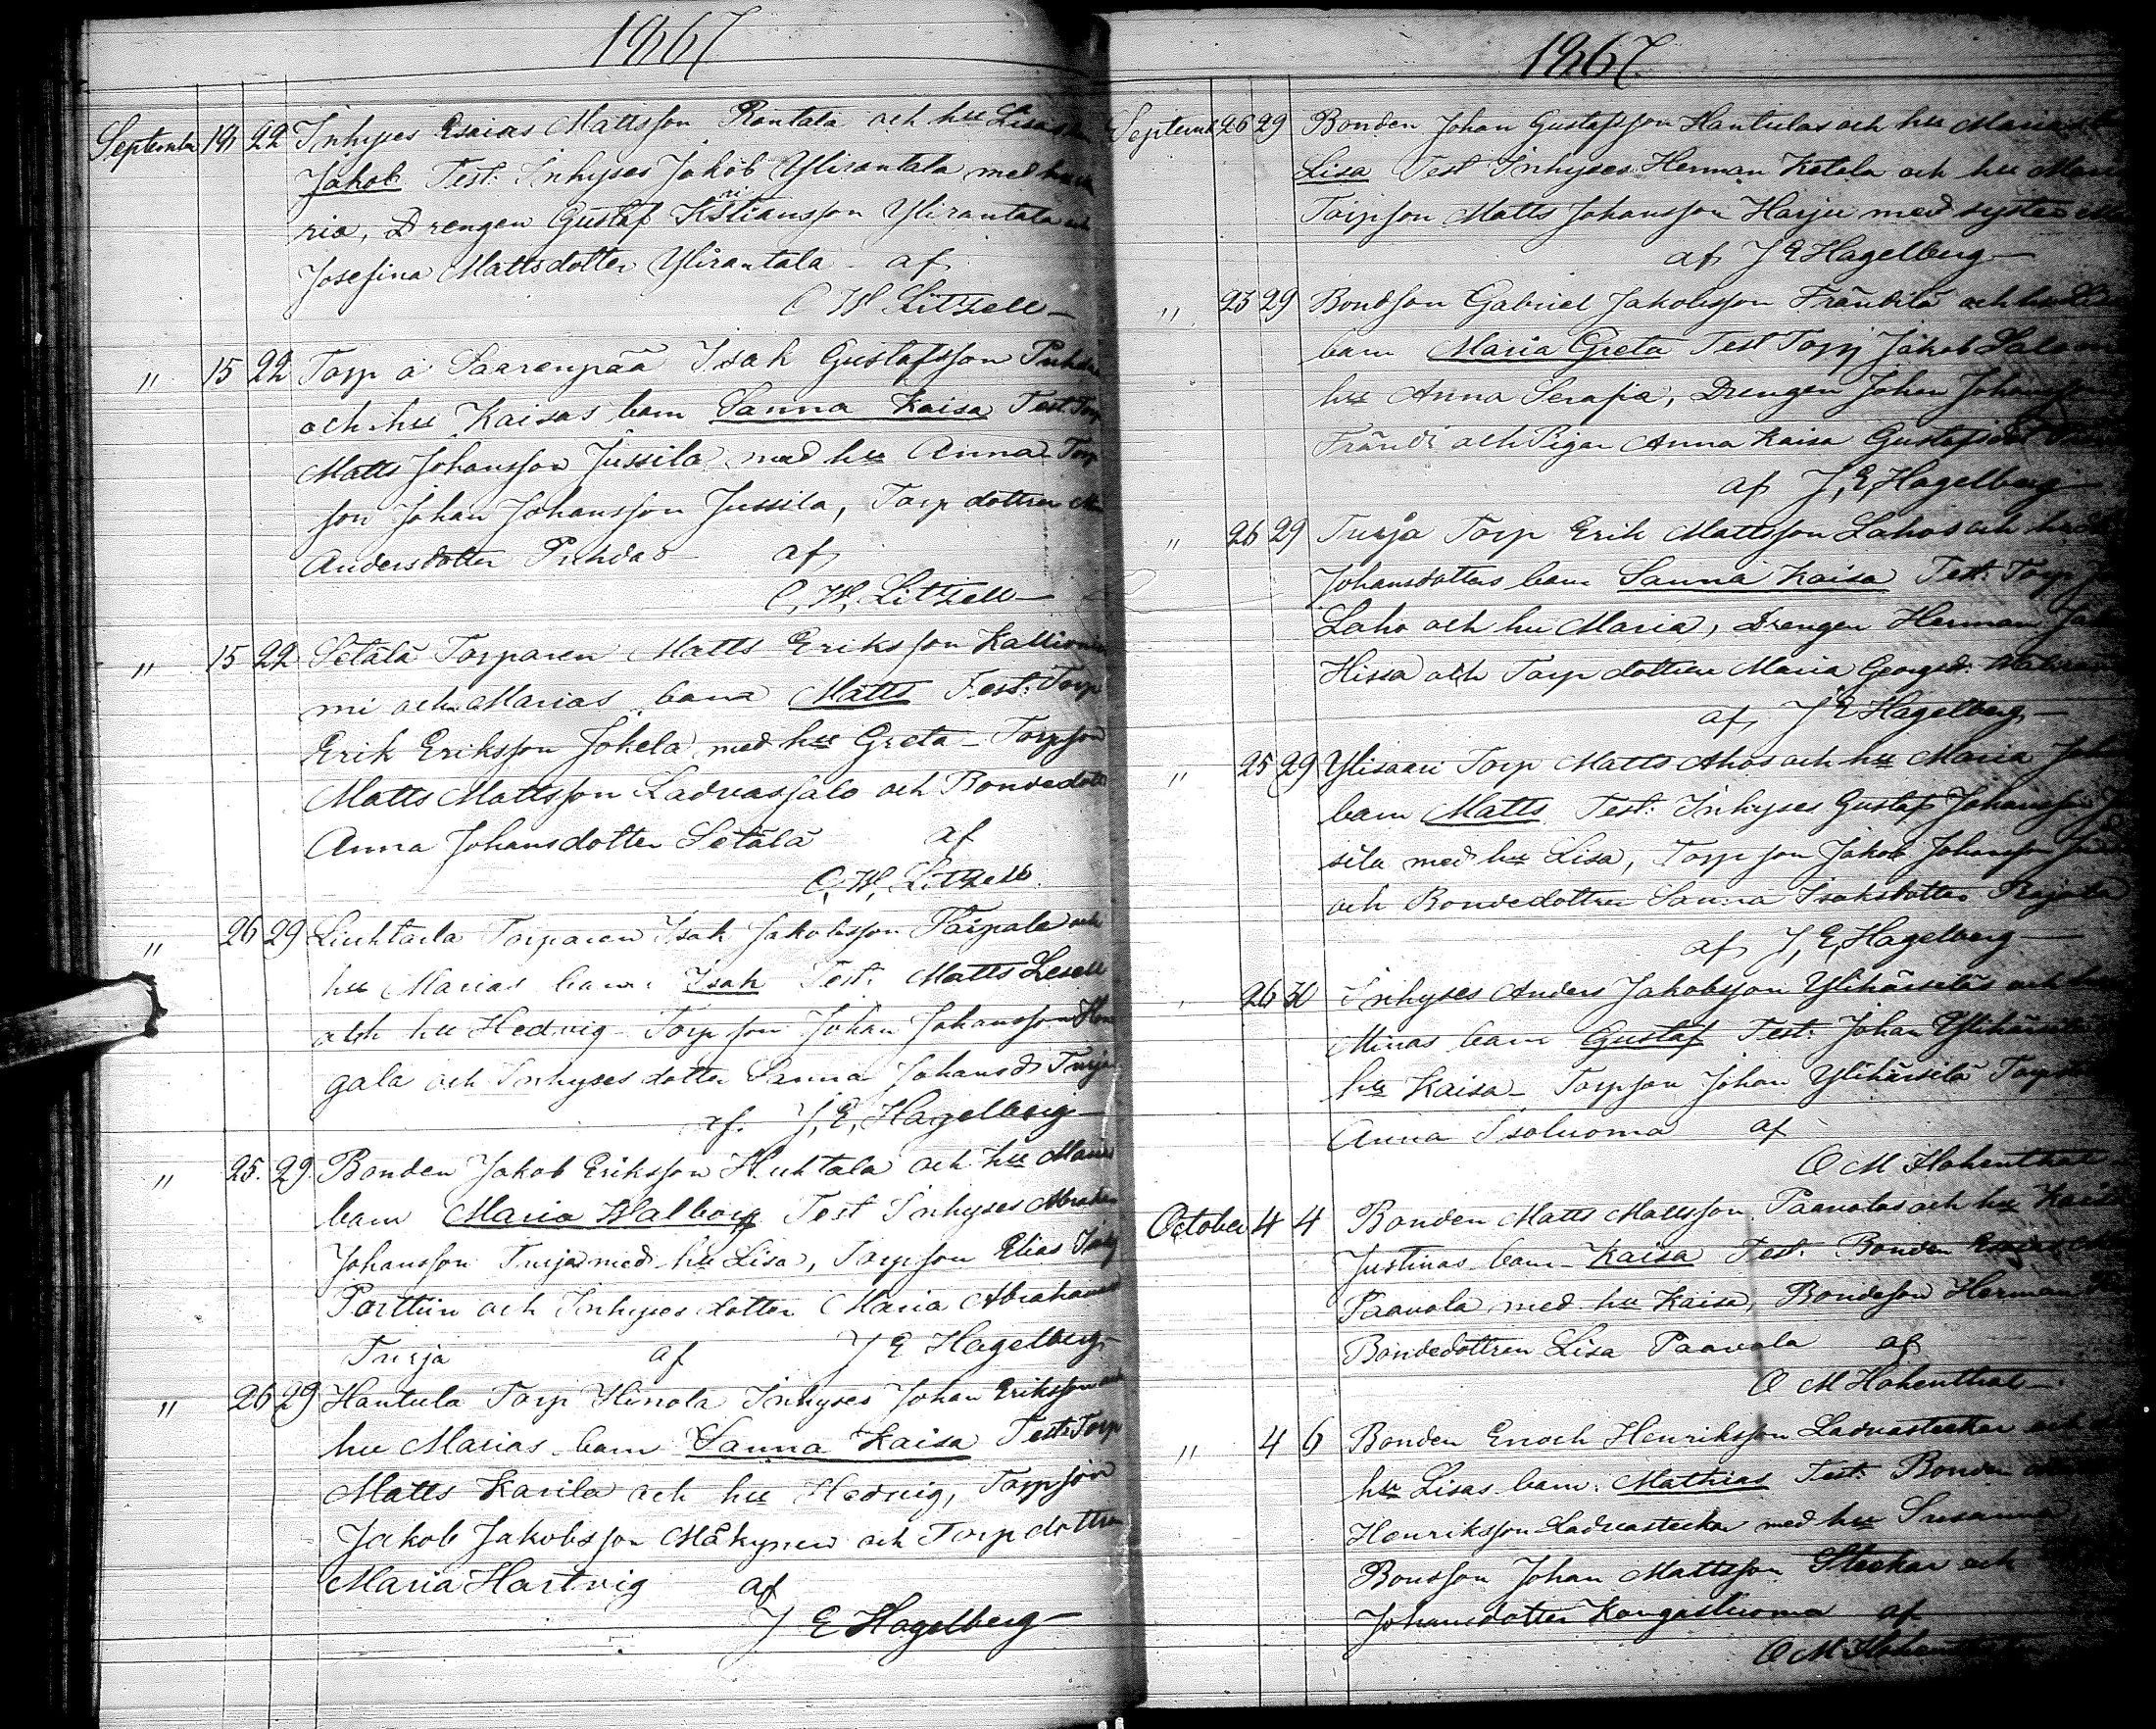 1867
September 18 22 Inhyses Esaias Mattsson Rantala och hu Lisas
Jakob Test: Inhyses Jakob Ylirantala med hu
ria, Drengen Gustaf Kristiansson Ylirantala och
Josefina Mattsdotter Ylirantala af
C W Litzell
" 15 22 Torp å Saarenpää Isak Gustafsson
och hu Kaisas barn Sanna Kaisa Test. Torp
Matts Johansson Jussila med hu Anna Torp
son Johan Johansson Jussila, Torp dottren
Andersdotter Puhdas af
C. W. Litzell
" 15 22 Setälä Torparen Matts Eriksson Kallionie
mi och Marias barn Matts Test: Torp
Erik Eriksson Jokela med hu Greta Torpson
Matts Mattsson Ladvassalo och Bondedott
Anna Johansdotter Setälä af
C. W. Litzell
" 26 29 Liuhtarla Torparen Isak Jakobsson Taipale och
hu Marias barn Isak Test. Matts Lesell
och hu Hedvig Torpson Johan Johansson Hon
gala och Inhyses dotter Sanna Johansd Turja
af. J, E, Hagelberg
" 25. 29. Bonden Jakob Eriksson Huhtala och hu Marias
barn Maria Walborg Test Inhyses Abraham
Johansson Turja med hu Lisa, Torpson Elias
Porttiin och Inhyses dotter Maria Abrahams
Turja af J E Hagelberg
" 26 29 Hantula Torp Ylinola Inhyses Johan Eriksson och
hu Marias barn Sanna Kaisa Test: Torp
Matts Karila och hu Hedvig, Torpson
Jakob Jakobsson Mäkynen och Torp dottren
Maria Hartvig af
J E Hagelberg
1867.
Septemb 26 29 Bonden Johan Gustafsson Hantulas och hu Marias
Lisa Test Inhyses Herman Ketola och hu
Torpson Matts Johansson Harju med syster
af J E Hagelberg
" 23 29 Bondson Gabriel Jakobsson Frändilä och hu
barn Maria Greta Test Torp Jakob
hu Anna Serafia, Drengen Johan Johans
Frändi och Pigan Anna Kaisa Gustafsd
af J, E, Hagelberg
" 26 29 Turja Torp Erik Mattsson Lahos och hu
Johansdotters barn Sanna Kaisa Test: Torp
Laho och hu Maria, Drengen Herman
Hissa och Torp dottren Maria Georgsd.
af, J E Hagelberg
" 25 29 Ylisaari Torp Matts Ahos och hu Maria
barn Matts Test: Inhyses Gustaf Johansson
sila med hu Lisa, Torpson Jakob Johansson
och Bondedottren Sanna Isaksdotter
af J, E, Hagelberg
26 30 Inhyses Anders Jakobsson Ylihärsiläs och hu
Minas barn Gustaf Test: Johan Ylihärsilä
hu Kaisa Torpson Johan Ylihärsilä
Anna Isoluoma af
O M Hohenthal
October 4 4 Bonden Matts Mattsson Paavolas och hu Kaisa
Justinas barn Kaisa Test. Bonden
Paavola med hu Kaisa, Bondeson Herman
Bondedottren Lisa Paavola af
O M Hohenthal
" 4 6 Bonden Enoch Henriksson Ladvasteckar och
hu Lisas barn. Mathias Test: Bonden
Henriksson Ladvasteckar med hu Susanna,
Bonsson Johan Mattsson Steckar och
Johansdotter Kangasluoma af
O M Hohenthal